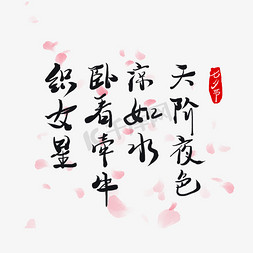 天阶夜色
凉如水
卧看牵牛
织女星
七夕节